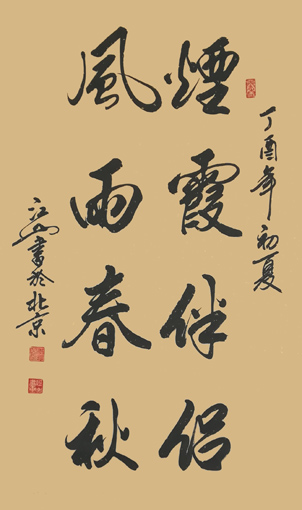 丁酉年初夏
煙霞伴侶
風雨春秋
江山書於北京